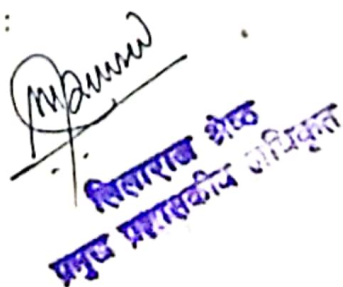 शिलाराज श्रेष्ठ
प्रमुख प्रशासकीय अधिकृत